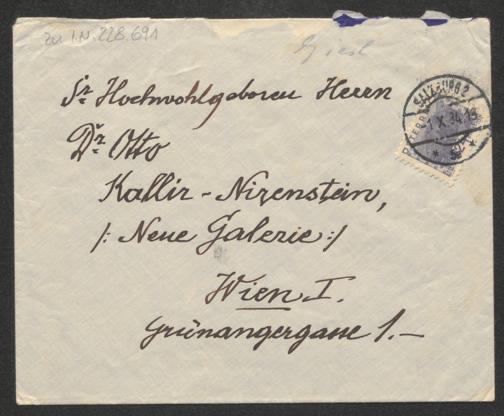 zu I.N. 228.691
Sr. Hochwohlgeboren Herrn
Dr. Otto
Kallir-Nirenstein,
/: Neue Galerie :/
Wien I.
Grünangergasse 1.—
SALZBURG 2